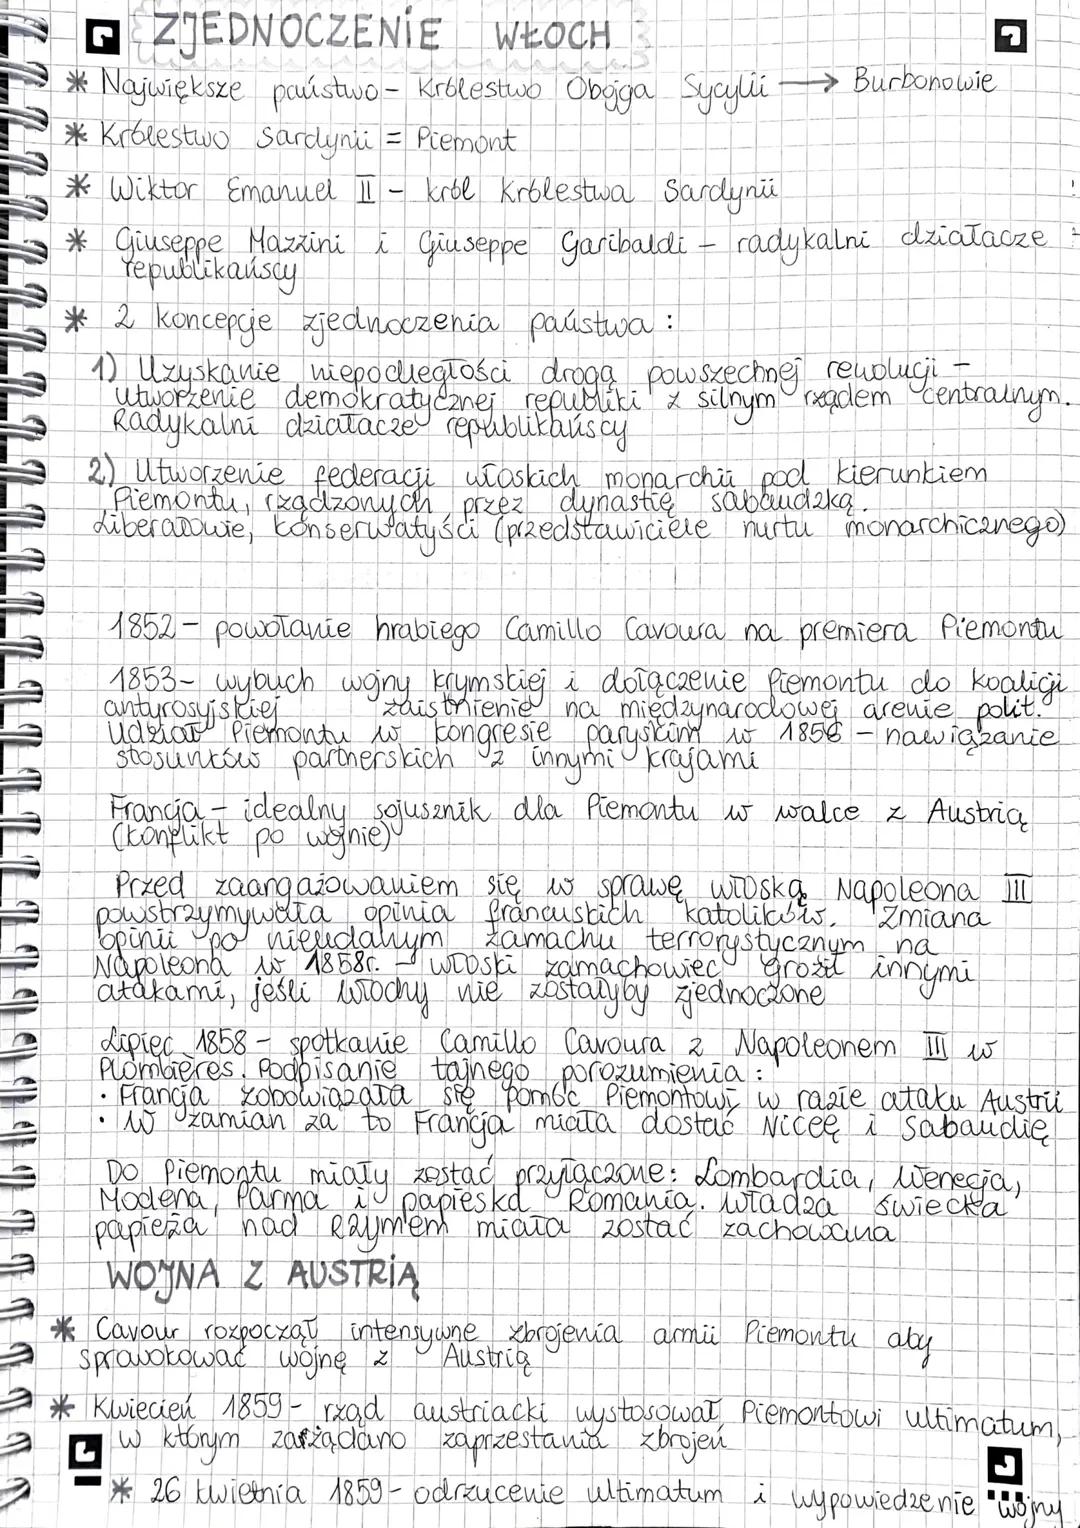 ZJEDNOCZENIE WŁOCH
* Największe państwo - Królestwo Obojga Sycylii → Burbonowie
* Królestwo Sardynii = Piemont
* Wiktor Emanuel II - król Królestwa Sardynii
* Giuseppe Mazzini i Giuseppe Garibaldi - radykalni działacze
republikańscy
* 2 koncepcje zjednoczenia państwa:
1) Uzyskanie niepodległości drogą powszechnej rewolucji -
utworzenie demokratycznej republiki z silnym rządem centralnym.
Radykalni działacze republikańscy
2) Utworzenie federacji włoskich monarchii pod kierunkiem
Piemontu, rządzonych przez dynastię sabaudzką.
Liberałowie, konserwatyści (przedstawiciele nurtu monarchicznego)
1852 - powołanie hrabiego Camillo Cavoura na premiera Piemontu
1853 - wybuch wojny krymskiej i dołączenie Piemontu do koalicji
antyrosyjskiej zaistnienie na międzynarodowej arenie polit.
Udział Piemontu w kongresie paryskim w 1856 - nawiązanie
stosunków partnerskich z innymi krajami
Francja - idealny sojusznik dla Piemontu w walce z Austrią
(konflikt po wojnie)
Przed zaangażowaniem się w sprawę włoską Napoleona III
powstrzymywała opinia francuskich katolików. Zmiana
opinii po nieudanym zamachu terrorystycznym na
Napoleona w 1858r. - włoski zamachowiec groził innymi
atakami, jeśli Włochy nie zostałyby zjednoczone
Lipiec 1858 - spotkanie Camillo Cavoura z Napoleonem III w
Plombières. Podpisanie tajnego porozumienia:
• Francja zobowiązała się pomóc Piemontowi w razie ataku Austrii
• W zamian za to Francja miała dostać Niceę i Sabaudię
Do Piemontu miały zostać przyłączone: Lombardia, Wenecja,
Modena, Parma i papieska Romania. Władza świecka
papieża nad Rzymem miała zostać zachowana
WOJNA Z AUSTRIĄ
* Cavour rozpoczął intensywne zbrojenia armii Piemontu aby
sprowokować wojnę z Austrią
* Kwiecień 1859 - rząd austriacki wystosował Piemontowi ultimatum,
w którym zażądano zaprzestania zbrojeń
* 26 kwietnia 1859 - odrzucenie ultimatum i wypowiedzenie wojny